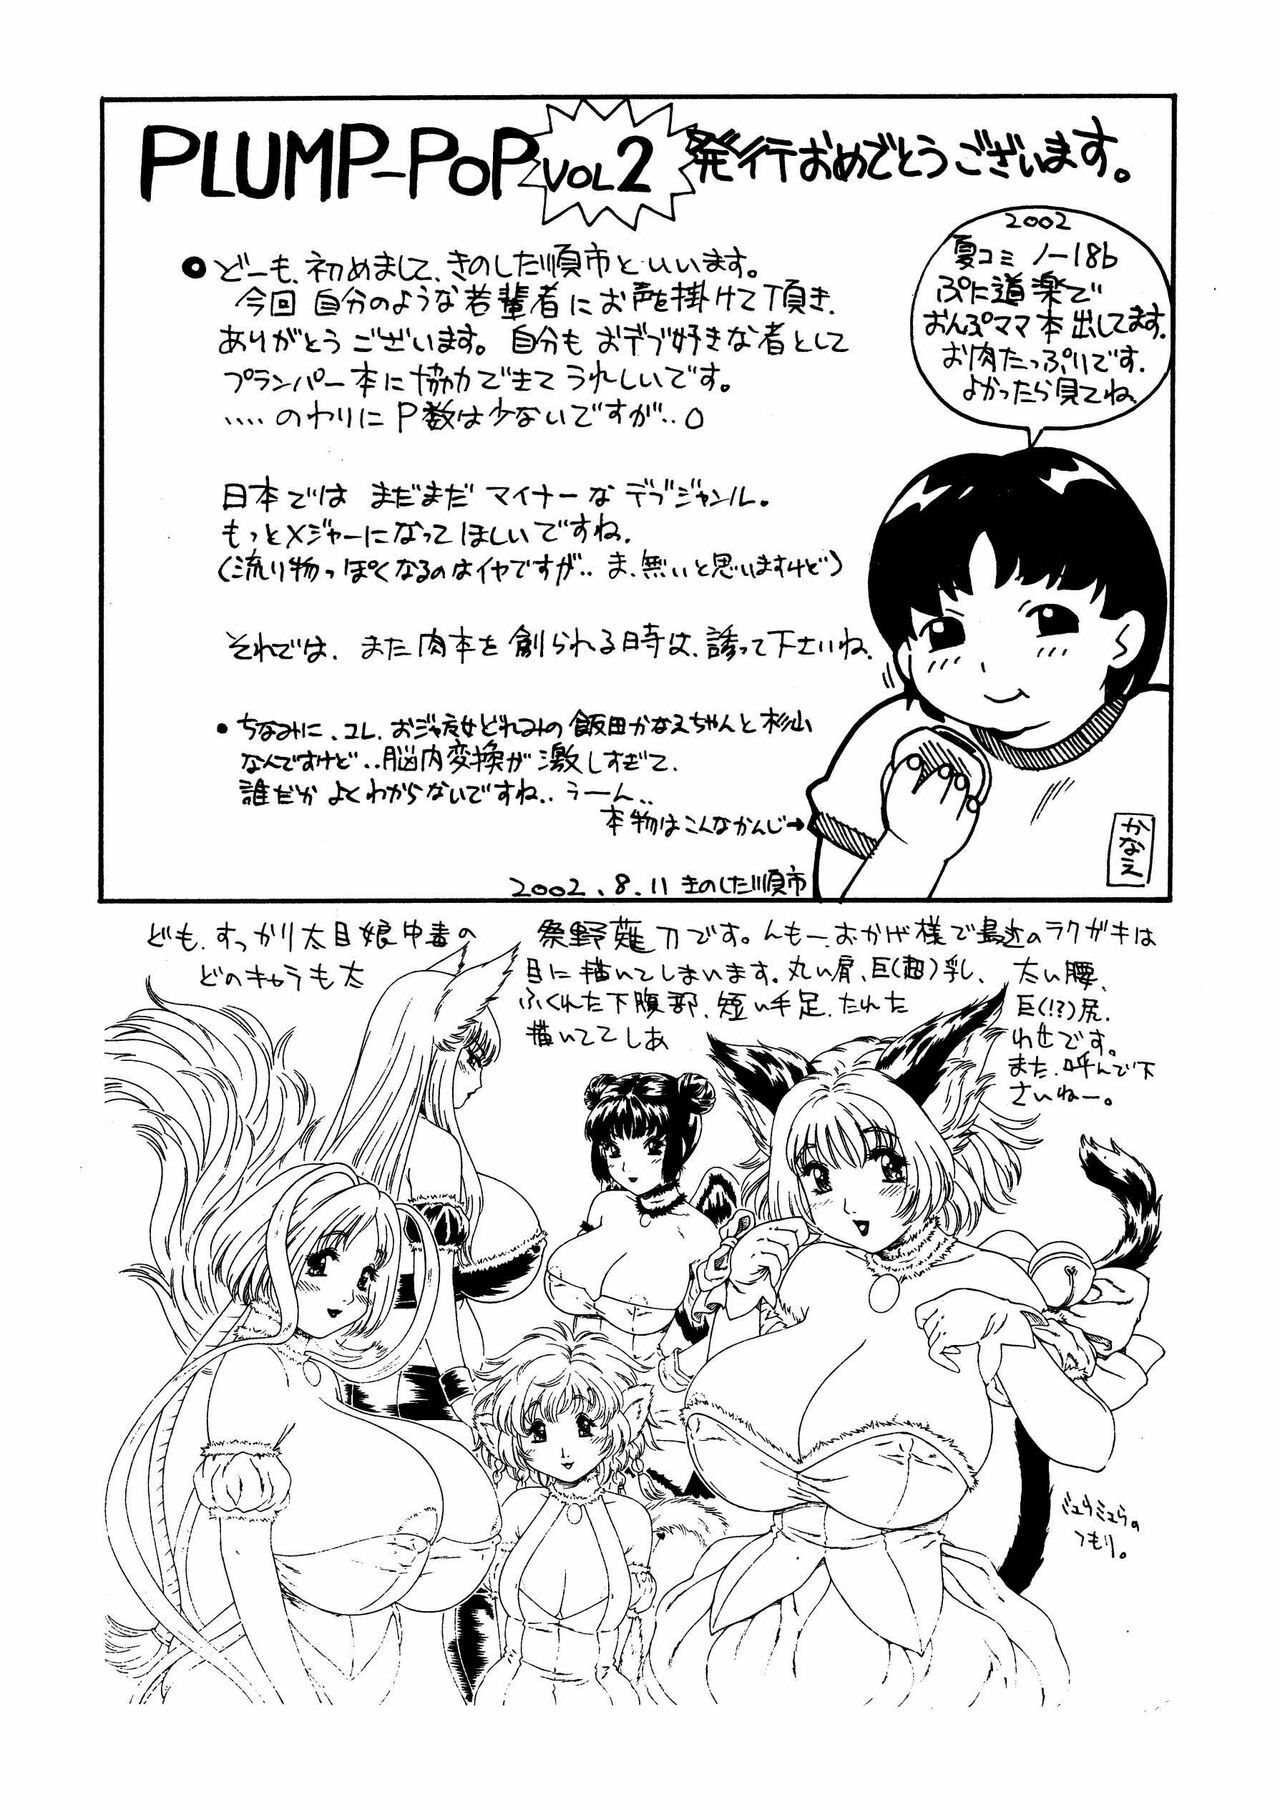 PLUMP-POP VOL2 発行おめでとうございます。
●どーも、初めまして、きのした順市といいます。
今回 自分のような若輩者にお声を掛けて頂き、
ありがとうございます。自分も おデブ好きな者として
プランパー本に協力できて うれしいです。
‥‥のわりに P数は少ないですが‥。
日本では まだまだ マイナーな デブジャンル。
もっとメジャーになって ほしいですね。
(流り物っぽくなるのはイヤですが‥ま、無いと思いますけど)
それでは、また肉本を 創られる時は、誘って下さいね。
•ちなみに、コレ、おジャ魔女どれみの 飯田かなえちゃんと 杉山
なんですけど‥、脳内変換が 激しすぎて、
誰だか よくわからないですね‥うーん‥
本物はこんなかんじ→
2002.8.11 きのした順市
2002
夏コミ ノー18b
ぷに道楽で
おんぷママ本出してます。
お肉たっぷりです。
よかったら見てね。
かなえ
ども、すっかり太目娘中毒の 祭野薙刀です。んもー、おかげ様で最近のラクガキは
どのキャラも太目に描いてしまいます。丸い肩、巨(超)乳、太い腰、
ふくれた下腹部、短い手足、たれた巨(!?)尻、
描いててしあわせです。
また、呼んで下
さいねー。
ミュウミュウの
つもり。